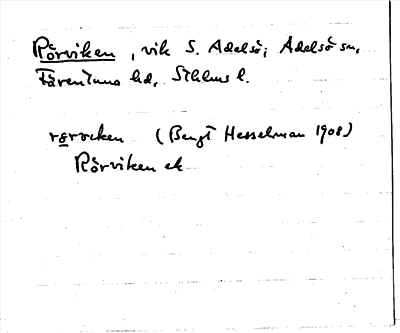 Rörviken, vik S. Adelsö; Adelsö sn,
Färentuna hd, Sthlms l.
rørviken (Bengt Hesselman 1908)
Rörviken ek